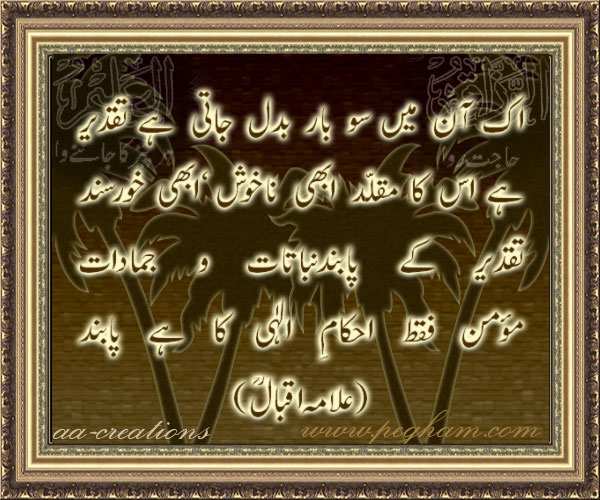 اک آن میں سو بار بدل جاتی ہے تقدیر
ہے اس کا مقلّد ابھی ناخوش، ابھی خورسند
تقدیر کے پابند نباتات و جمادات
مؤمن فقط احکامِ الٰہی کا ہے پابند
(علامہ اقبالؒ)
حاجت روا
aa-creations
www.pegham.com